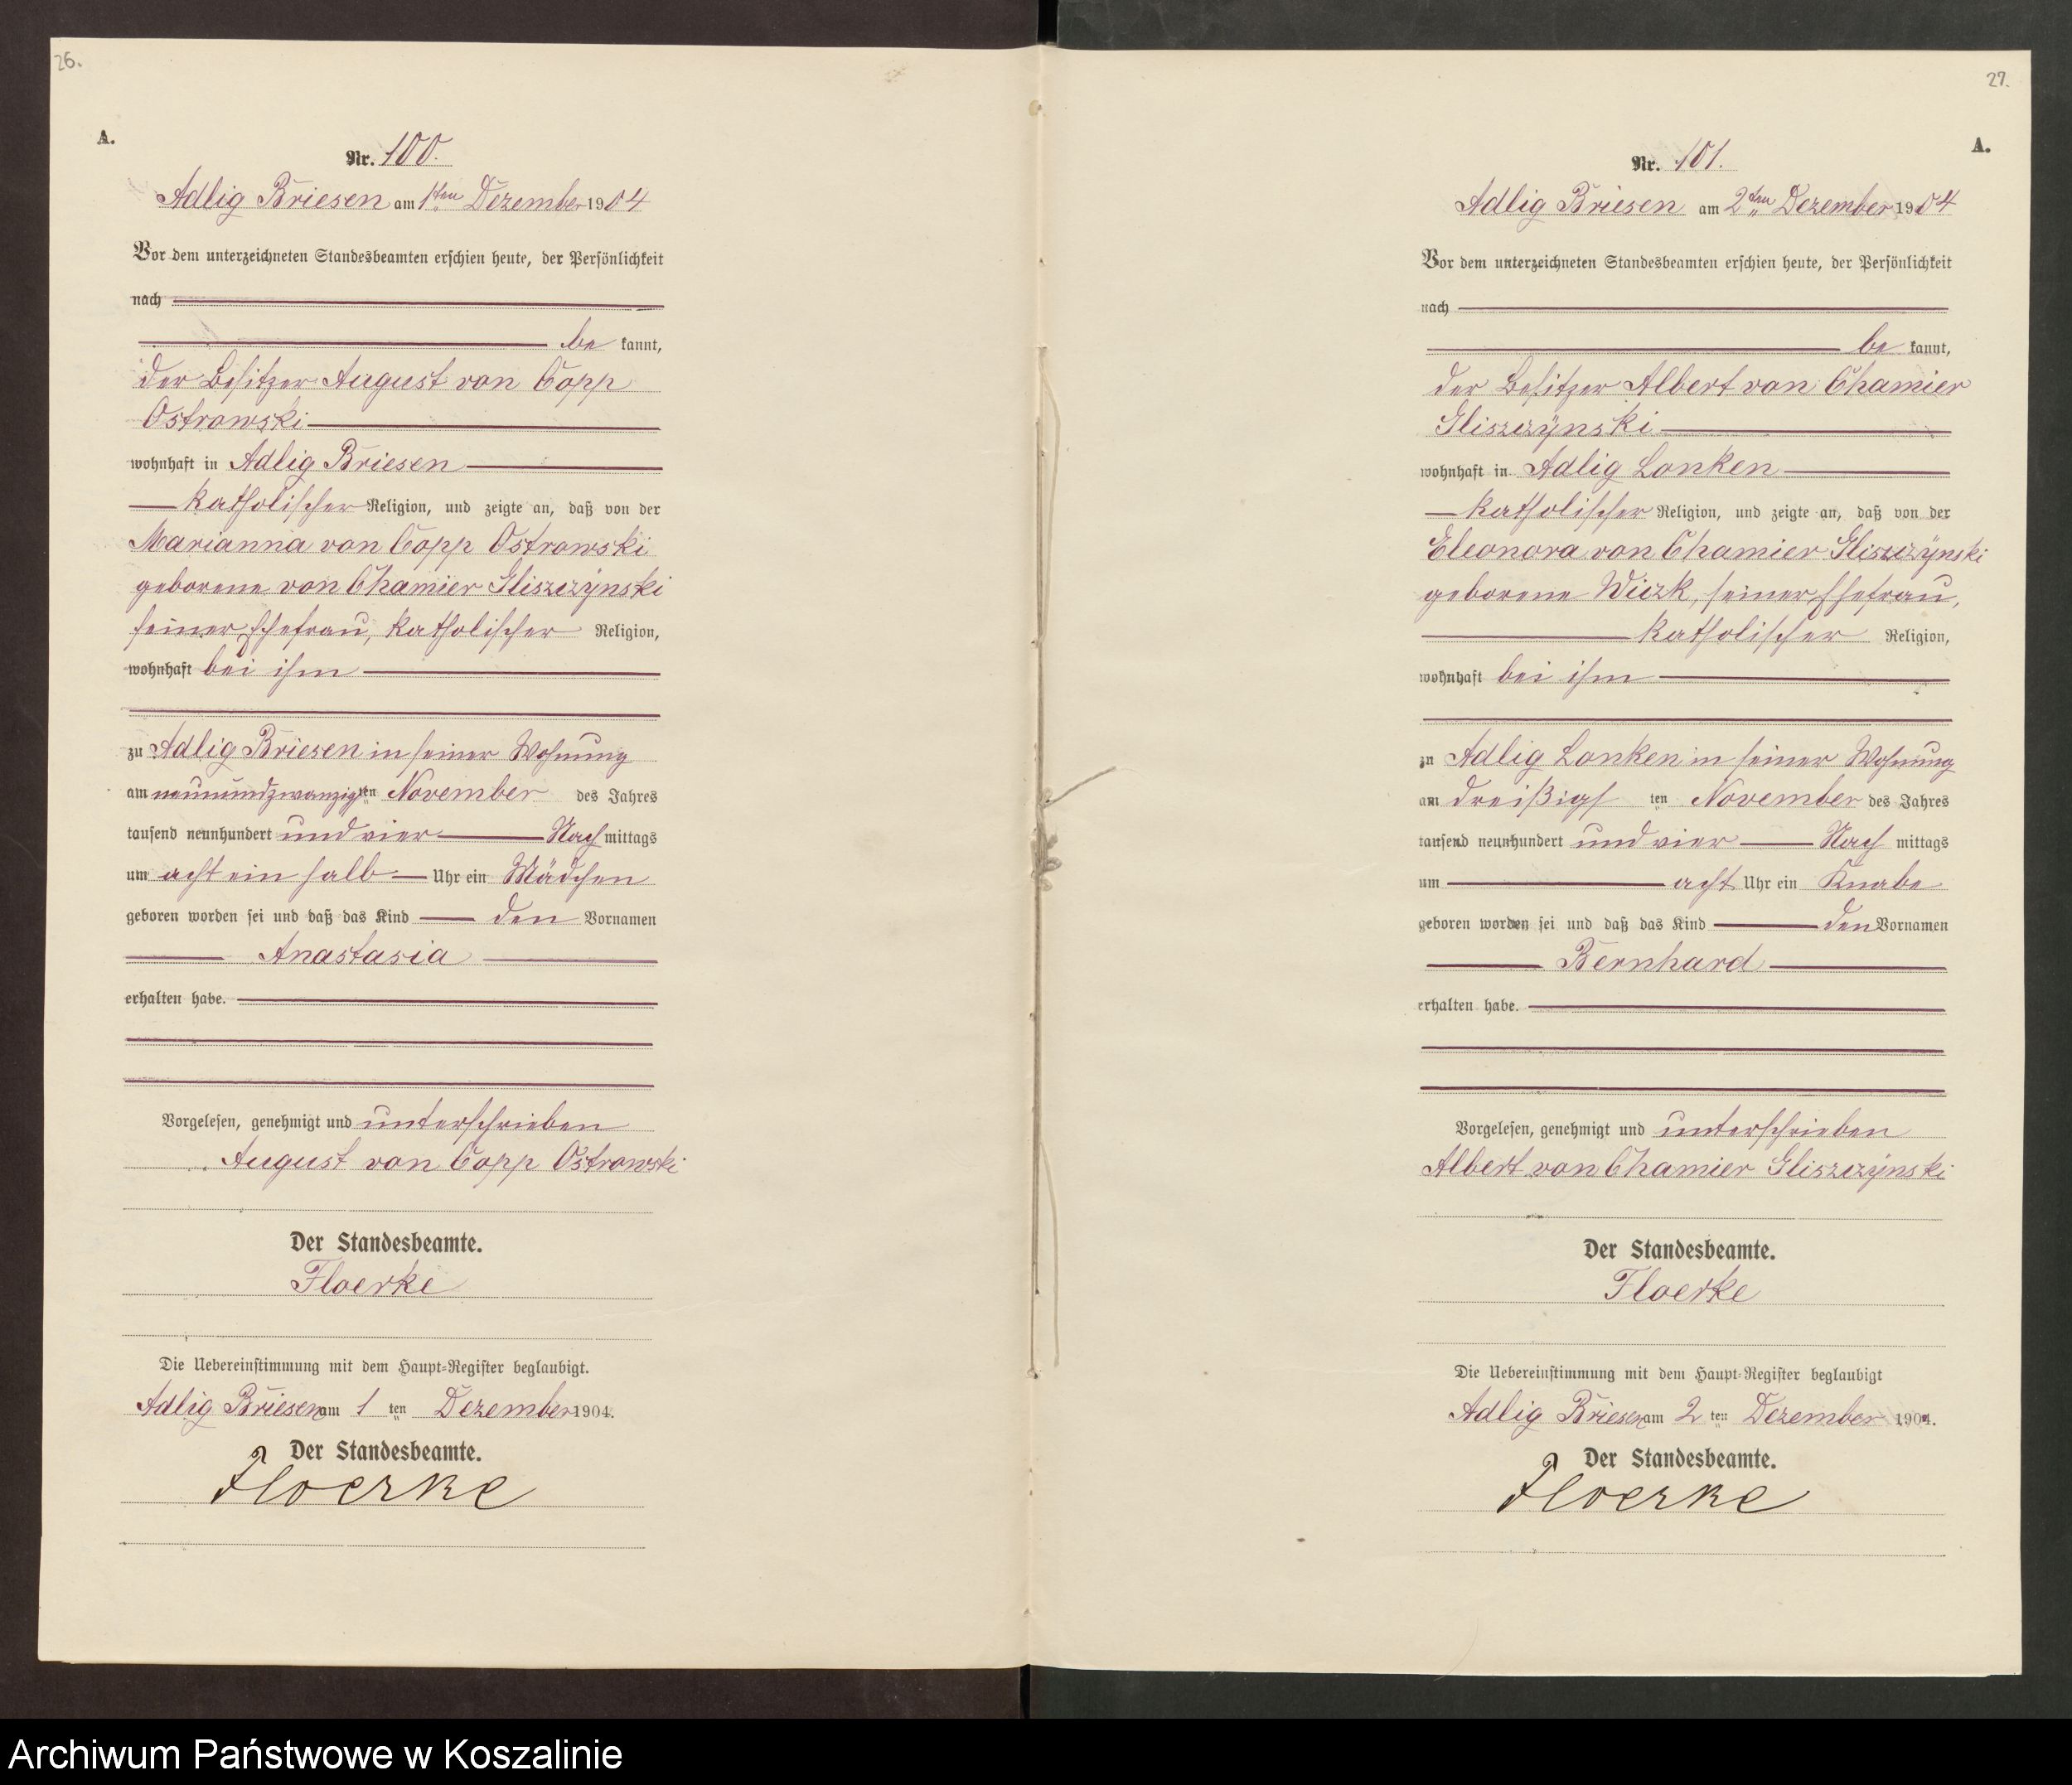 26.
A.
Nr. 100.
Adlig Briesen am 1ten Dezember 1904
Vor dem unterzeichneten Standesbeamten erschien heute, der Persönlichkeit
nach
be kannt,
der Besitzer August von Copp
Ostrowski
wohnhaft in Adlig Briesen
katholischer Religion, und zeigte an, daß von der
Marianna von Copp Ostrowski
geborene von Chamier Gliszczynski
seiner Ehefrau, katholischer Religion,
wohnhaft bei ihm
zu Adlig Briesen in seiner Wohnung
am neunundzwanzigsten November des Jahres
tausend neunhundert und vier Nachmittags
um acht ein halb Uhr ein Mädchen
geboren worden sei und daß das Kind den Vornamen
Anastasia
erhalten habe.
Vorgelesen, genehmigt und unterschrieben
August von Copp Ostrowski
Der Standesbeamte.
Floerke
Die Uebereinstimmung mit dem Haupt-Register beglaubigt.
Adlig Briesen am 1 ten Dezember 1904.
Der Standesbeamte.
Floerke
27.
A.
Nr. 101.
Adlig Briesen am 2ten Dezember 1904
Vor dem unterzeichneten Standesbeamten erschien heute, der Persönlichkeit
nach
be kannt,
der Besitzer Albert von Chamier
Gliszczÿnski
wohnhaft in Adlig Lonken
katholischer Religion, und zeigte an, daß von der
Eleonora von Chamier Gliszczÿnski
geborene Wiczk, seiner Ehefrau,
katholischer Religion,
wohnhaft bei ihm
zu Adlig Lonken in seiner Wohnung
am dreißigs ten November des Jahres
tausend neunhundert und vier Nach mittags
um acht Uhr ein Knabe
geboren worden sei und daß das Kind den Vornamen
Bernhard
erhalten habe.
Vorgelesen, genehmigt und unterschrieben
Albert von Chamier Gliszczÿnski
Der Standesbeamte.
Floerke
Die Uebereinstimmung mit dem Haupt-Register beglaubigt
Adlig Briesen am 2 ten Dezember 1904.
Der Standesbeamte.
Floerke
Archiwum Państwowe w Koszalinie